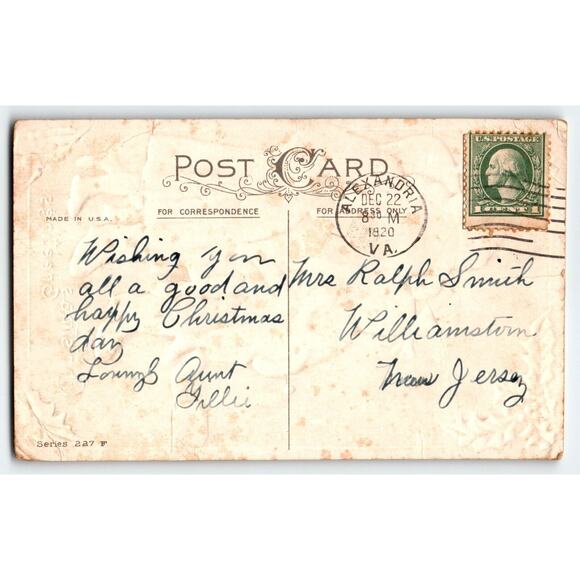 POST CARD
MADE IN U.S.A.
FOR CORRESPONDENCE
FOR ADDRESS ONLY
ALEXANDRIA
DEC 22
8 M
1920
VA.
U.S. POSTAGE
1 CENT 1
Wishing you
all a good and
happy Christmas
day
Aunt
Mrs Ralph Smith
Williamstown
New Jersey
Series 227 F